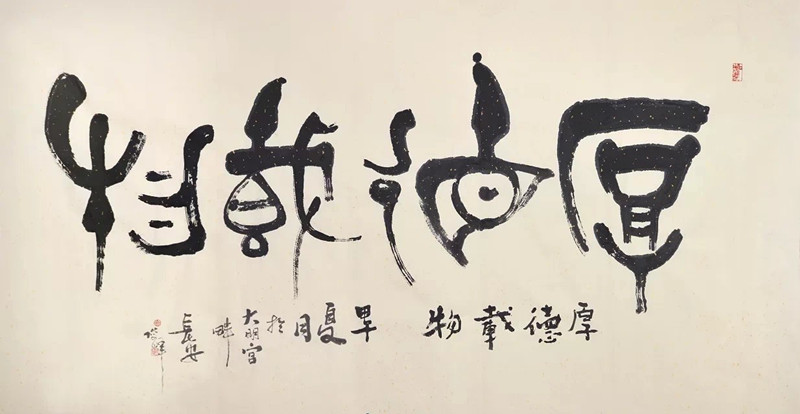 厚德載物
厚德載物 早夏月於大明宮畔長安